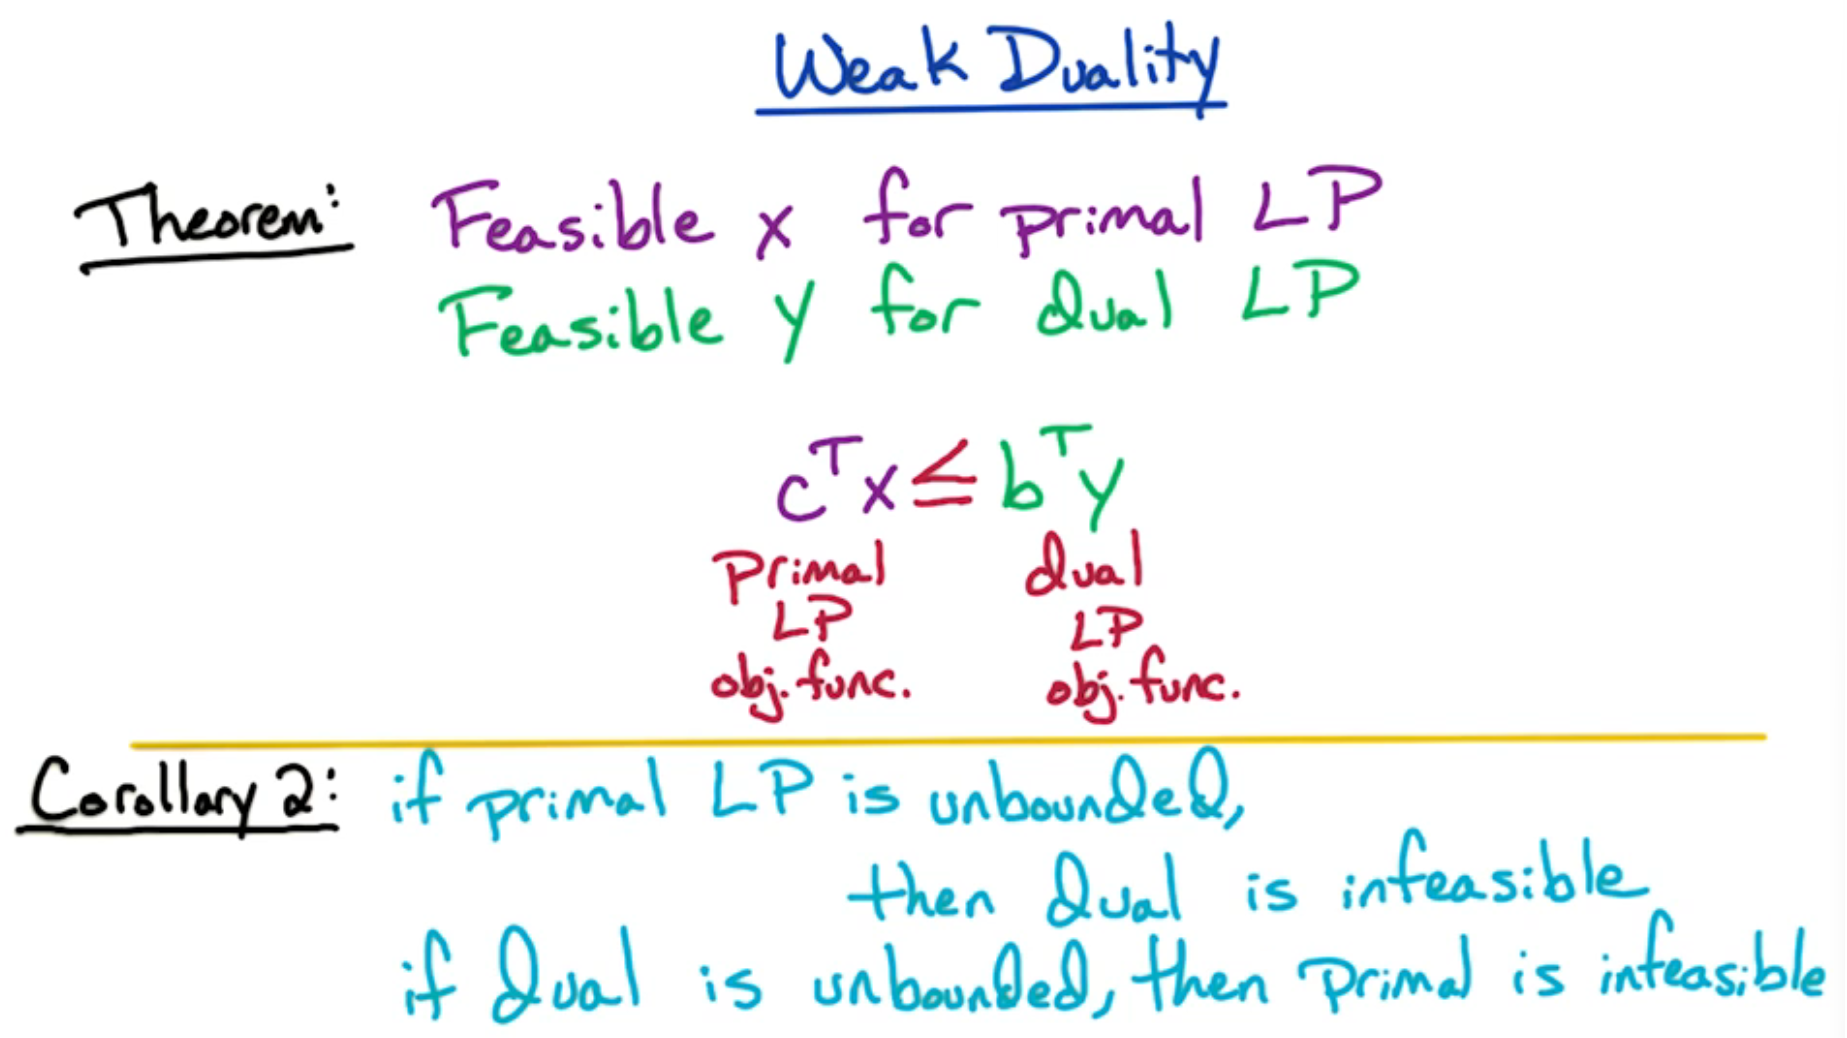 Weak Duality
Theorem: Feasible x for primal LP
Feasible y for dual LP
cᵀx ≤ bᵀy
primal dual
LP LP
obj. func. obj. func.
Corollary 2: if primal LP is unbounded,
then dual is infeasible
if dual is unbounded, then primal is infeasible